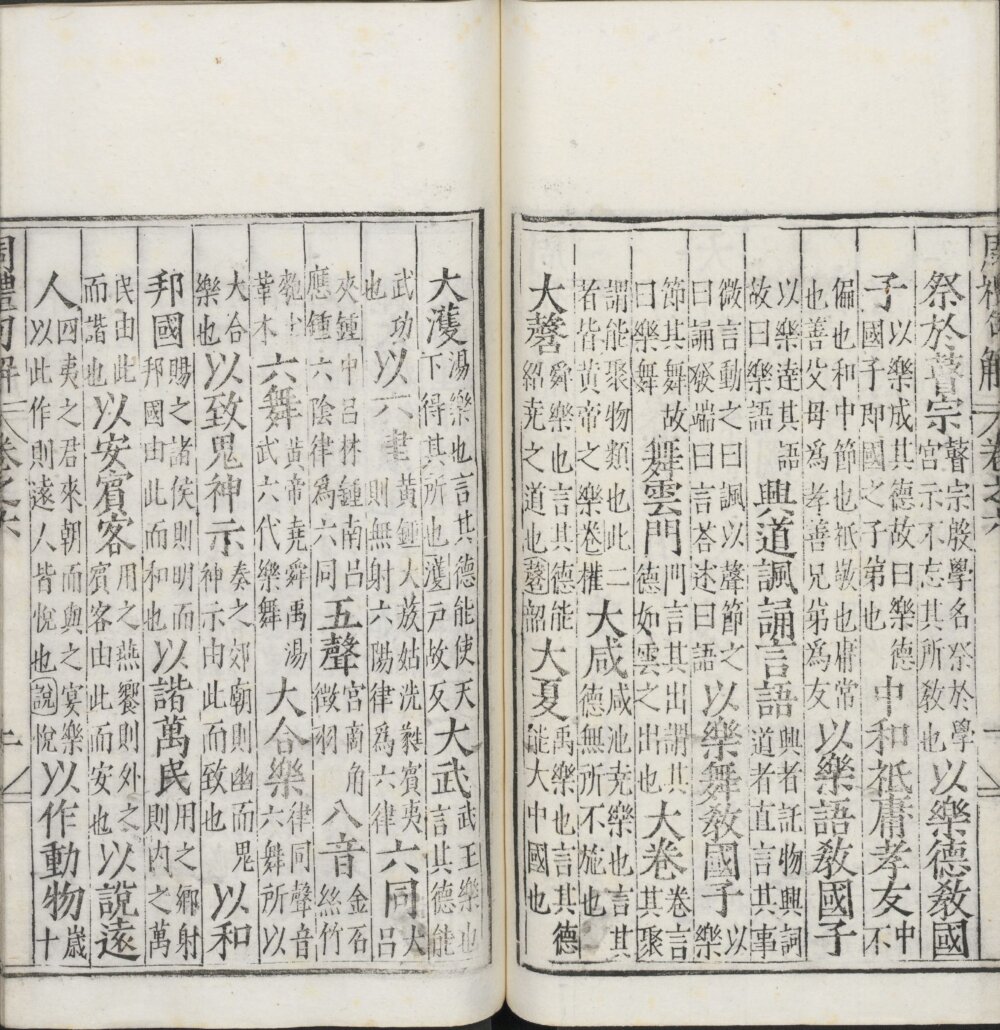 周禮句解 卷之六
祭於瞽宗瞽宗殷學名祭於學宮示不忘其所教也以樂德教國
子以樂成其德故曰樂德國子即國之子弟也中和祗庸孝友中不
偏也和中節也祗敬也庸常也善父母爲孝善兄弟爲友以樂語教國子
以樂達其語故曰樂語興道諷誦言語興者託物興詞道者直言其事
微言動之曰諷以聲節之曰誦發端曰言荅述曰語以樂舞教國子以樂
節其舞故曰樂舞舞雲門門言其出謂其德如雲之出也大卷卷言其聚
謂能聚物類也此二者皆黃帝之樂卷權大咸咸池尭樂也言其德無所不施也
大㲈舜樂也言其德能紹尭之道也㲈韶大夏禹樂也言其德能大中國也
大濩湯樂也言其德能使天下得其所也濩戸故反大武武王樂也言其德能
武功也以六律則黃鍾大蔟姑洗蕤賓夷無射六陽律爲六律六同大呂
夾鍾中呂林鍾南呂應鍾六陰律爲六同五聲宮商角徵羽八音金石絲竹
匏土革木六舞黃帝堯舜禹湯武六代樂舞大合樂律同聲音六舞所以
大合樂也以致鬼神示奏之郊廟則幽而鬼神示由此而致也以和
邦國賜之諸侯則明而邦國由此而和也以諧萬民用之鄉射則內之萬
民由此而諧也以安賓客用之燕饗則外之賓客由此而安也以說遠
人四夷之君來朝而與之宴樂以此作則遠人皆悅也說悅以作動物歲十
周禮句解 卷之六